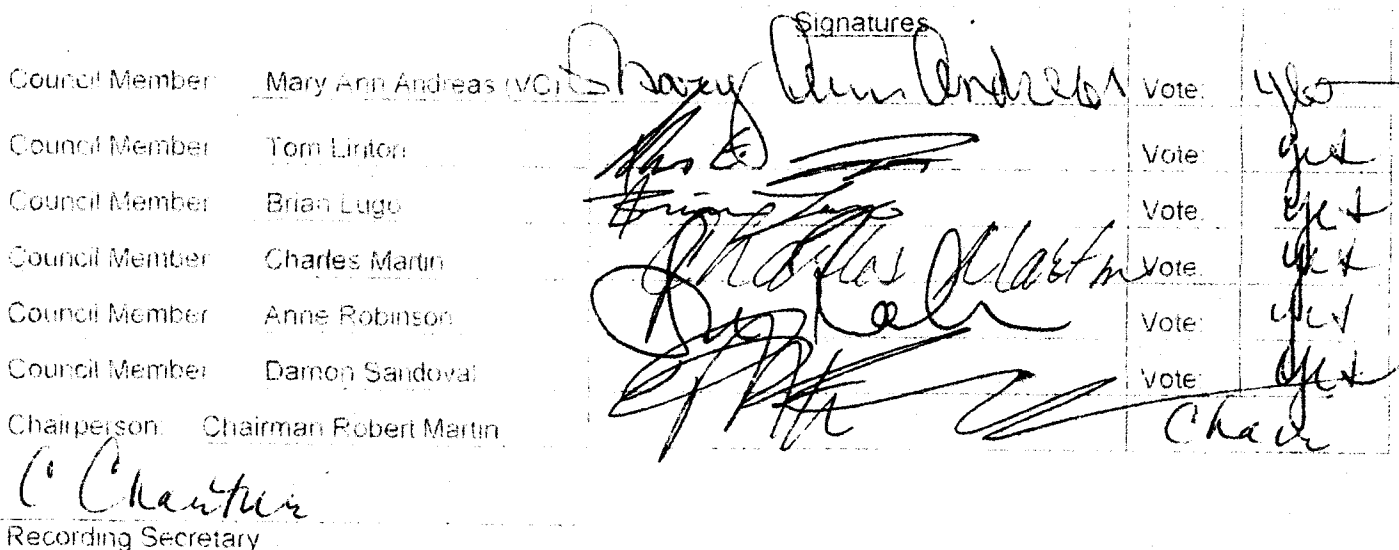 Signatures
Council Member Mary Ann Andreas (VC) Mary Ann Andreas Vote: yes
Council Member Tom Linton Vote: yes
Council Member Brian Lugo Brian Lugo Vote: yes
Council Member Charles Martin Charles Martin Vote: yes
Council Member Anne Robinson Vote: yes
Council Member Damon Sandoval Vote: yes
Chairperson: Chairman Robert Martin Chair
Recording Secretary